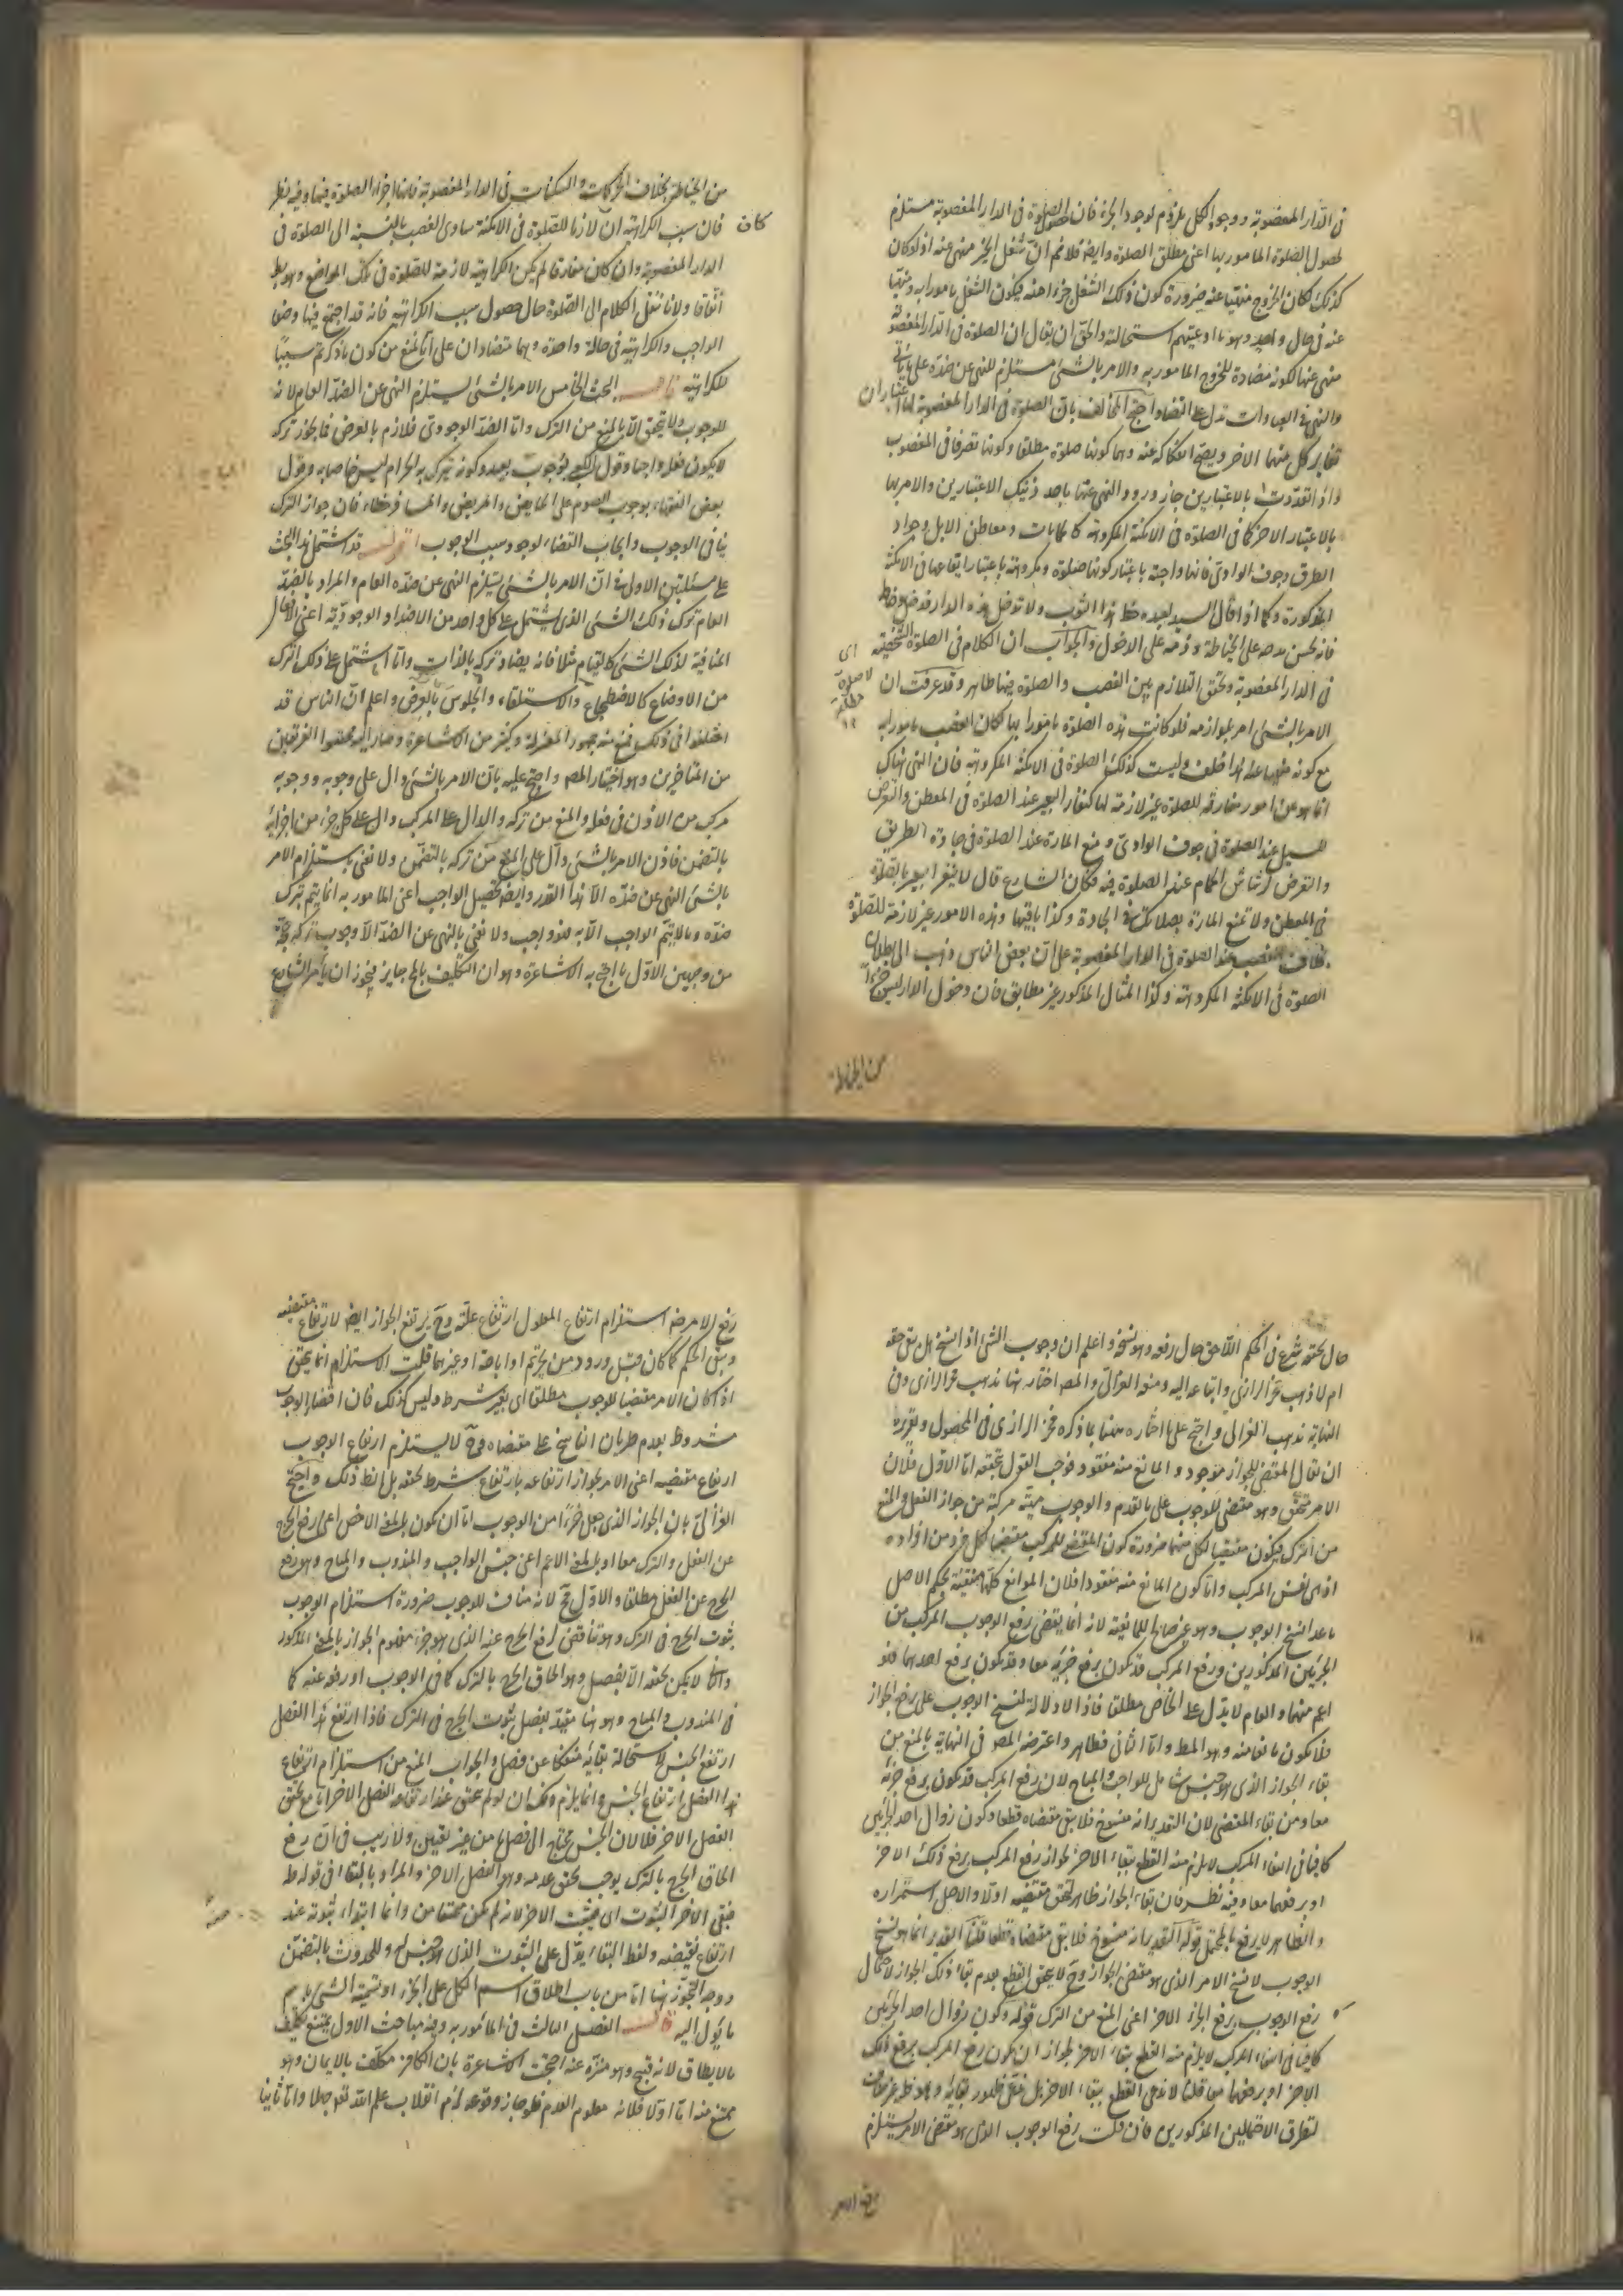 فى الدار المغصوبة ووجود الكل ملزوم لوجود الجزء فان حصول الصلوة فى الدار المغصوبة مستلزم
لحصول الصلوة المامور بها اعنى مطلق الصلوة وايضا فلا نم ان شغل الحيز منهى عنه اذ لو كان
كذلك لكان الخروج منهيا عنه ضرورة كون ذلك الشغل جزءا منه فيكون الشغل مامورا به ومنهيا
عنه فى حال واحد وهو ما ادعيتم استحالته والحق ان يقال ان الصلوة فى الدار المغصوبة
منهى عنها لكونه مضادة للخروج المامور به والامر بالشئ مستلزم للنهى عن ضده على ما ياتى
والنهى فى العبادات يدل على الفساد احتج المخالف بان الصلوة فى الدار المغصوبة لها اعتباران
تغاير كل منهما الاخر ويصح انفكاكه عنه وهما كونها صلوة مطلقا وكونها تصرفا فى المغصوب
واذا تعددت بالاعتبارين جاز ورود النهى عنها باحد ذينك الاعتبارين والامر بها
بالاعتبار الاخر كما فى الصلوة فى الامكنة المكروهة كالحمامات ومعاطن الابل وجواد
الطرق وجوف الوادى فانها واجبة باعتبار كونها صلوة ومكروهة باعتبار ايقاعها فى الامكنة
المذكورة وكما اذا قال السيد لعبده خط هذا الثوب ولا تدخل هذه الدار فدخل وخاط
فانه يحسن مدحه على الخياطة وذمه على الدخول والجواب ان الكلام فى الصلوة الشخصية
اى لا صلوة مطلقة ١٢
فى الدار المغصوبة وتحقق التلازم بين الغصب والصلوة فيها ظاهر وقد عرفت ان
الامر بالشئ امر بلوازمه فلو كانت هذه الصلوة مامورا بها لكان الغصب مامورا به
مع كونه منهيا عنه هذا خلف وليست كذلك الصلوة فى الامكنة المكروهة فان النهى هناك
انما هو عن امور مفارقة للصلوة غير لازمة لها كنفار البعير عند الصلوة فى المعطن والتعرض
للسيل عند الصلوة فى جوف الوادى ومنع المارة عند الصلوة فى جادة الطريق
والتعرض لرشاش الحمام عند الصلوة فيه فكان الشارع قال لا ينفر البعير بالصلوة
فى المعطن ولا تمنع المارة بصلاتك فى الجادة وكذا باقيها وهذه الامور غير لازمة للصلوة
بخلاف الغصب عند الصلوة فى الدار المغصوبة على ان بعض الناس ذهب الى بطلان
الصلوة فى الامكنة المكروهة وكذا المثال المذكور غير مطابق فان دخول الدار ليس جزءا
من الخياطة
من الخياطة بخلاف الحركات والسكنات فى الدار المغصوبة فانها اجزاء الصلوة فيها وفيه نظر
فان سبب الكراهية ان كان لازما للصلوة فى الامكنة ساوى الغصب بالنسبة الى الصلوة فى
الدار المغصوبة وان كان مفارقا لم يكن الكراهية لازمة للصلوة فى تلك المواضع وهو بط
اتفاقا ولانا ننقل الكلام الى الصلوة حال حصول سبب الكراهية فانه قد اجتمع فيها وصفا
الواجب والكراهية فى حالة واحدة وهما متضادان على انا نمنع من كون ما ذكرتم سببا
للكراهية قال البحث الخامس الامر بالشئ يستلزم النهى عن الضد العام لانه
للوجوب ولا يتحقق الا بالمنع من الترك واما الضد الوجودى فلازم بالعرض فما يجوز تركه
لا يكون فعله واجبا وقول الكعبى بوجوب بعيد وكونه يترك به الحرام ليس خاصا به وقول
بعض الفقهاء بوجوب الصوم على الحايض والمريض والمسافر خطاء فان جواز الترك
ينافى الوجوب وايجاب القضاء لوجود سبب الوجوب اقول قد اشتمل هذا البحث
على مسئلتين الاولى فى ان الامر بالشئ يستلزم النهى عن ضده العام والمراد بالضد
العام ترك ذلك الشئ الذى يشتمل على كل واحد من الاضداد الوجودية اعنى الافعال
المنافية لذلك الشئ كالقيام مثلا فانه يضاد تركه بالذات واما ما يشتمل على ذلك الترك
من الاوضاع كالاضطجاع والاستلقاء والجلوس بالعرض واعلم ان الناس قد
اختلفوا فى ذلك فمنع منه جمهور المعتزلة وكثير من الاشاعرة وصار اليه محققوا الفريقين
من المتاخرين وهو اختيار المص واحتج عليه بان الامر بالشئ دال على وجوبه ووجوبه
مركب من الاذن فى فعله والمنع من تركه والدال على المركب دال على كل جزء من اجزائه
بالتضمن فاذن الامر بالشئ دال على المنع من تركه بالتضمن ولا نعنى باستلزام الامر
بالشئ النهى عن ضده الا هذا القدر وايضا تحصيل الواجب اعنى المامور به انما يتم بترك
ضده وما لا يتم الواجب الا به فهو واجب ولا نعنى بالنهى عن الضد الا وجوب تركه
من وجهين الاول ما احتج به الاشاعرة وهو ان التكليف بالمح جايز فيجوز ان يامر الشارع
حال تحققه شرع فى الحكم اللاحق حال رفعه وهو نسخه واعلم ان وجوب الشئ اذا نسخ هل يبقى جوازه
ام لا ذهب فخر الرازى واتباعه اليه ومنعه الغزالى والمص اختار هنا مذهب فخر الرازى وفى
النهاية مذهب الغزالى واحتج على ما اختاره هنا بما ذكره فخر الرازى فى المحصول وتقريره
ان يقال المقتضى للجواز موجود والمانع منه مفقود فوجب القول بتحققه اما الاول فلان
الامر متحقق وهو مقتضى للوجوب على ما تقدم والوجوب مهية مركبة من جواز الفعل والمنع
من الترك فيكون مقتضيا لكل منهما ضرورة كون المقتضى للمركب مقتضيا لكل فرد من افراده
اذ هى نفس المركب واما كون المانع منه مفقودا فلان الموانع كلها منتفية بحكم الاصل
ما عدا نسخ الوجوب وهو غير صالح للمانعية لانه انما يقتضى رفع الوجوب المركب من
الجزئين المذكورين ورفع المركب قد يكون برفع جزئيه معا وقد يكون برفع احدهما فهو
اعم منهما والعام لا يدل على الخاص مطلقا فاذا لا دلالة لنسخ الوجوب على رفع الجواز
فلا يكون مانعا منه وهو المط واما الثانى فظاهر واعترضه المص فى النهاية بالمنع من
بقاء الجواز الذى هو جنس شامل للواجب والمباح لان رفع المركب قد يكون برفع جزئيه
معا ومن بقاء المقتضى لان التقدير انه منسوخ فلا يبقى مقتضاه قطعا وكون زوال احد الجزئين
كافيا فى انتفاء المركب لا يلزم منه القطع ببقاء الاخر لجواز رفع المركب برفع ذلك الاخر
او برفعهما معا وفيه نظر فان بقاء الجواز ظاهر لتحقق مقتضيه اولا والاصل استمراره
والظاهر لا يرفع بالمحتمل قوله التقدير انه منسوخ فلا يبقى مقتضاه قطعا قلنا التقدير انما هو نسخ
الوجوب لا نسخ الامر الذى هو مقتضى الجواز وح لا يتحقق القطع بعدم بقاء ذلك الجواز لاحتمال
رفع الوجوب برفع الجزء الاخر اعنى المنع من الترك قوله وكون زوال احد الجزئين
كافيا فى انتفاء المركب لا يلزم منه القطع ببقاء الاخر لجواز ان يكون رفع المركب برفع ذلك
الاخر او برفعهما معا قلنا لا ندعى القطع ببقاء الاخر بل ندعى ظهور بقائه
لتطرق الاحتمالين المذكورين فان قلت رفع الوجوب الذى هو مقتضى الامر يستلزم
رفع الامر
رفع الامر ضرورة استلزام ارتفاع المعلول ارتفاع علته وح يرتفع الجواز ايضا لارتفاع مقتضيه
وبقى الحكم كما كان قبل ورود من تحريم او اباحة او غيرهما قلت الاستلزام انما يتحقق
اذا كان الامر مقتضيا للوجوب مطلقا اى بغير شرط وليس كذلك فان اقتضاء الوجوب
مشروط بعدم طريان الناسخ على مقتضاه وح لا يستلزم ارتفاع الوجوب
ارتفاع مقتضيه اعنى الامر لجواز ارتفاعه بارتفاع شرط تحققه بل الظ ذلك واحتج
الغزالى بان الجواز الذى جعل جزءا من الوجوب اما ان يكون بالمعنى الاخص اعنى رفع الحرج
عن الفعل والترك معا او بالمعنى الاعم اعنى جنس الواجب والمندوب والمباح وهو رفع
الحرج عن الفعل مطلقا والاول مح لانه مناف للوجوب ضرورة استلزام الوجوب
ثبوت الحرج فى الترك وهو مناقض لرفع الحرج عنه الذى هو جزء مفهوم الجواز بالمعنى المذكور
والثانى لا يمكن تحققه الا بفصل وهو الحاق الحرج بالترك كما فى الوجوب او رفعه عنه كما
فى المندوب والمباح وهو هنا مقيد بفصل ثبوت الحرج فى الترك فاذا ارتفع هذا الفصل
ارتفع الجنس لاستحالة بقائه منفكا عن فصل والجواب المنع من استلزام ارتفاع
هذا الفصل ارتفاع الجنس وانما يلزم ذلك ان لو لم يتحقق عند ارتفاعه الفصل الاخر اما مع تحقق
الفصل الاخر فلا لان الجنس محتاج الى فصل ما من غير تعيين ولا ريب فى ان رفع
الحاق الحرج بالترك يوجب تحقق عدمه وهو الفصل الاخر والمراد بالبقاء فى قوله ط
فيبقى الاخر الثبوت اى فيثبت الاخر لانه لم يكن متحققا من وانما ابتداء ثبوته عند
ارتفاع نقيضه ولفظ البقاء يدل على الثبوت الذى هو جنس له وللحدوث بالتضمن
ووجه التجوز هنا اما من باب اطلاق اسم الكل على الجزء او تسمية الشئ باسم
ما يؤل اليه قال الفصل الثالث فى المامور به وفيه مباحث الاول يمتنع تكليف
ما لا يطاق لانه قبيح وهو منزه عنه احتجت الاشاعرة بان الكافر مكلف بالايمان وهو
ممتنع منه اما اولا فلانه معلوم العدم فلو جاز وقوعه لزم انقلاب علم الله تعه جهلا واما ثانيا